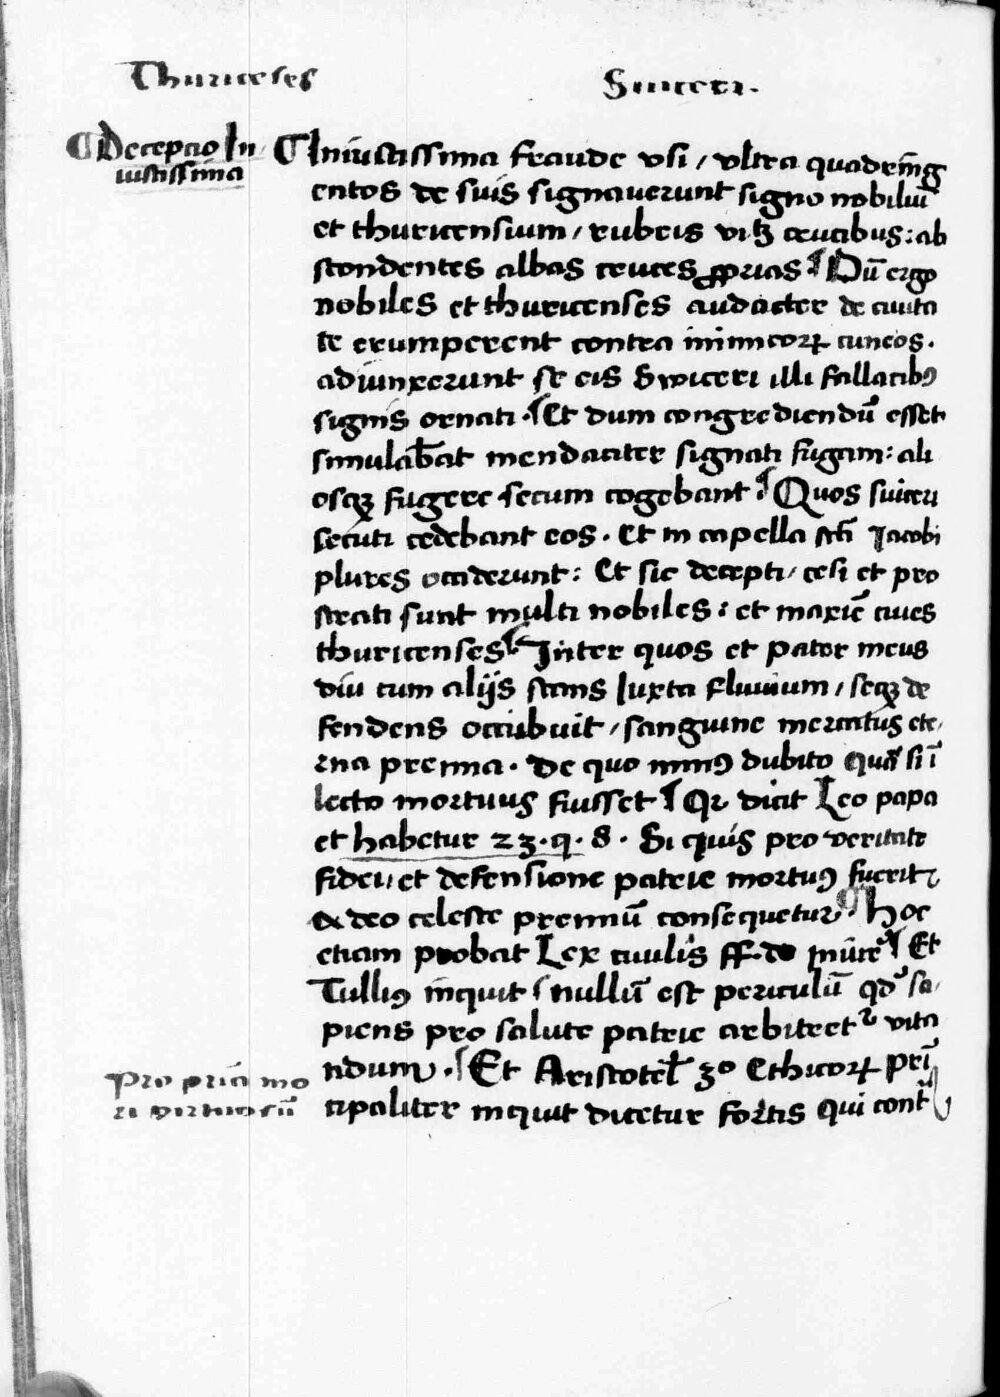 Thuricẽses Suiceri.
Decepcio In
iustissima
Iniustissima fraude vsi / vltra quadring̃
entos de suis signauerunt signo nobiliũ
et thuricensium / rubeis vitȝ crucibus : ab
scondentes albas cruces ꝓprias Dũ ergo
nobiles et thuricenses audacter de ciuita
te erumperent contra inimicorꝝ cuneos .
adiunxerunt se eis Swiceri illi fallacibꝰ
signis ornati . Et dum congrediendũ esset
simulabãt mendaciter signati fugam : ali
osqꝫ fugere secum cogebant Quos suiceri
secuti cedebant eos . Et in capella scti Iacobi
plures occiderunt : Et sic decepti / cesi et pro
strati sunt multi nobiles : et maxiẽ ciues
thuricenses Inter quos et pater meus
diu cum alijs stans Iuxta fluuium / seqꝫ de
fendens occubuit / sanguine mercatus ete
rna premia . De quo minꝰ dubito quã si ĩ
lecto mortuus fuisset Qr dicit Leo papa
et habetur 23 . q . 8 . Si quis pro veritate
fidei / et defensione patrie mortuꝰ fuerit
a deo celeste premiũ consequetur . Hoc
etiam probat Lex ciuilis ff . de
Et
Tulliꝰ inquit nullũ est periculũ qd̃ sa
piens pro salute patrie arbitretr vita
ndum . Et Aristotel̃ 3o Ethicorꝝ pri
Pro pria mo
ri virtuosũ
cipaliter inquit dicetur fortis qui